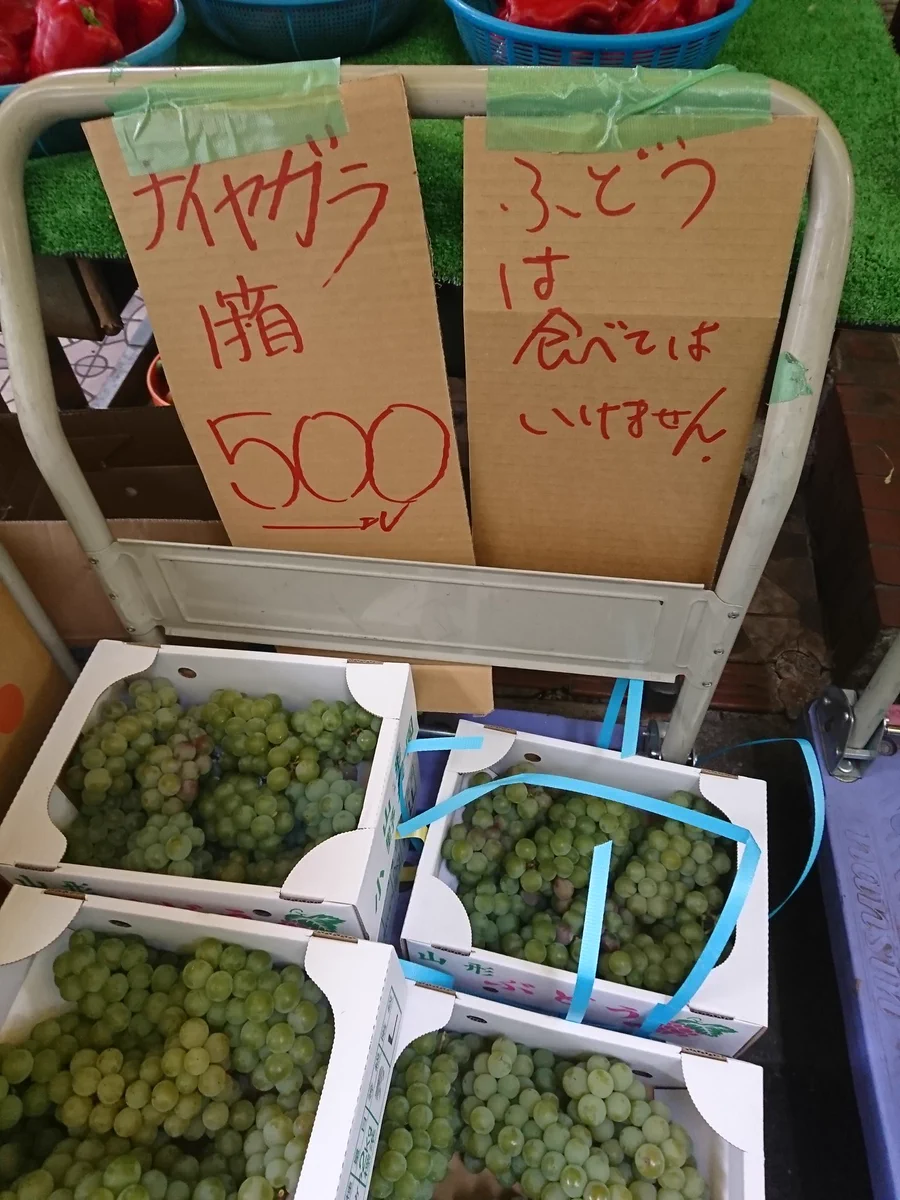 ナイヤガラ
1箱
500
ふどう
は
食べては
いけません.
山形
山形
ぶどう